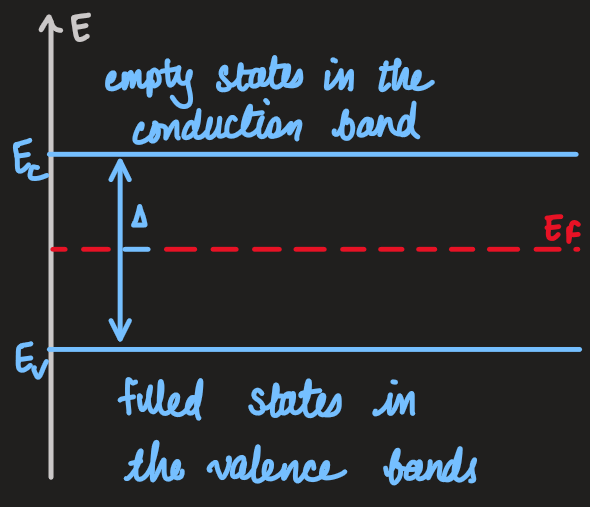 E
empty states in the
conduction band
Ec
Δ
Ef
Ev
filled states in
the valence bands